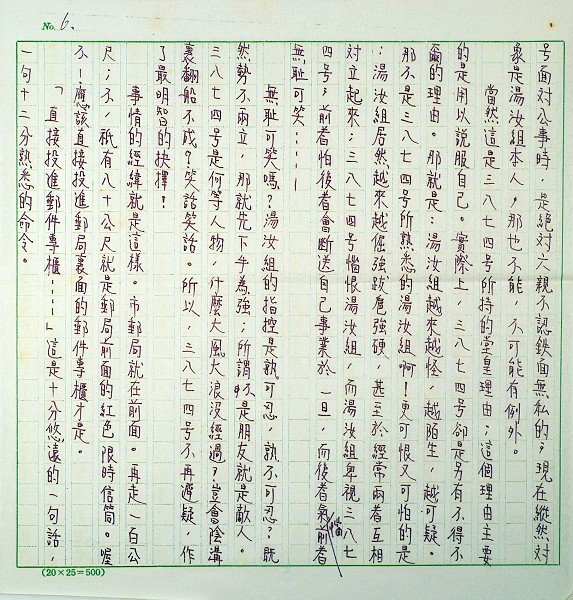 No. 6.
號面對公事時,是絕對六親不認鉄面無私的;現在縱然對
象是湯汝組本人,那也不能,不可能有例外。
當然這是三八七四号所持的堂皇理由;這個理由主要
的是用以說服自己。實際上,三八七四号卻是另有不得不
爾的理由。那就是:湯汝組越來越怪,越陌生,越可疑。
那不是三八七四号所熟悉的湯汝組啊!更可恨又可怕的是
:湯汝組居然越來越倔強跋扈強硬,甚至於經常兩者互相
對立起來;三八七四号惱恨湯汝組,而湯汝組卑視三八七
四号;前者怕後者會斷送自己事業於一旦,而後者氣憤前者
無恥可笑……
無恥可笑嗎?湯汝組的指控是孰可忍,孰不可忍?既
然勢不兩立,那就先下手為強;所謂不是朋友就是敵人。
三八七四号是何等人物,什麼大風大浪沒經過?豈會陰溝
裏翻船不成?笑話笑話。所以,三八七四号不再遲疑,作
了最明智的抉擇!
事情的經緯就是這樣。市郵局就在前面。再走一百公
尺;不,祇有八十公尺就是郵局前面的紅色限時信筒。喔
不!應該直接投進郵局裏面的郵件專櫃才是。
「直接投進郵件專櫃……」這是十分悠遠的一句話,
一句十二分熟悉的命令。
(20×25=500)